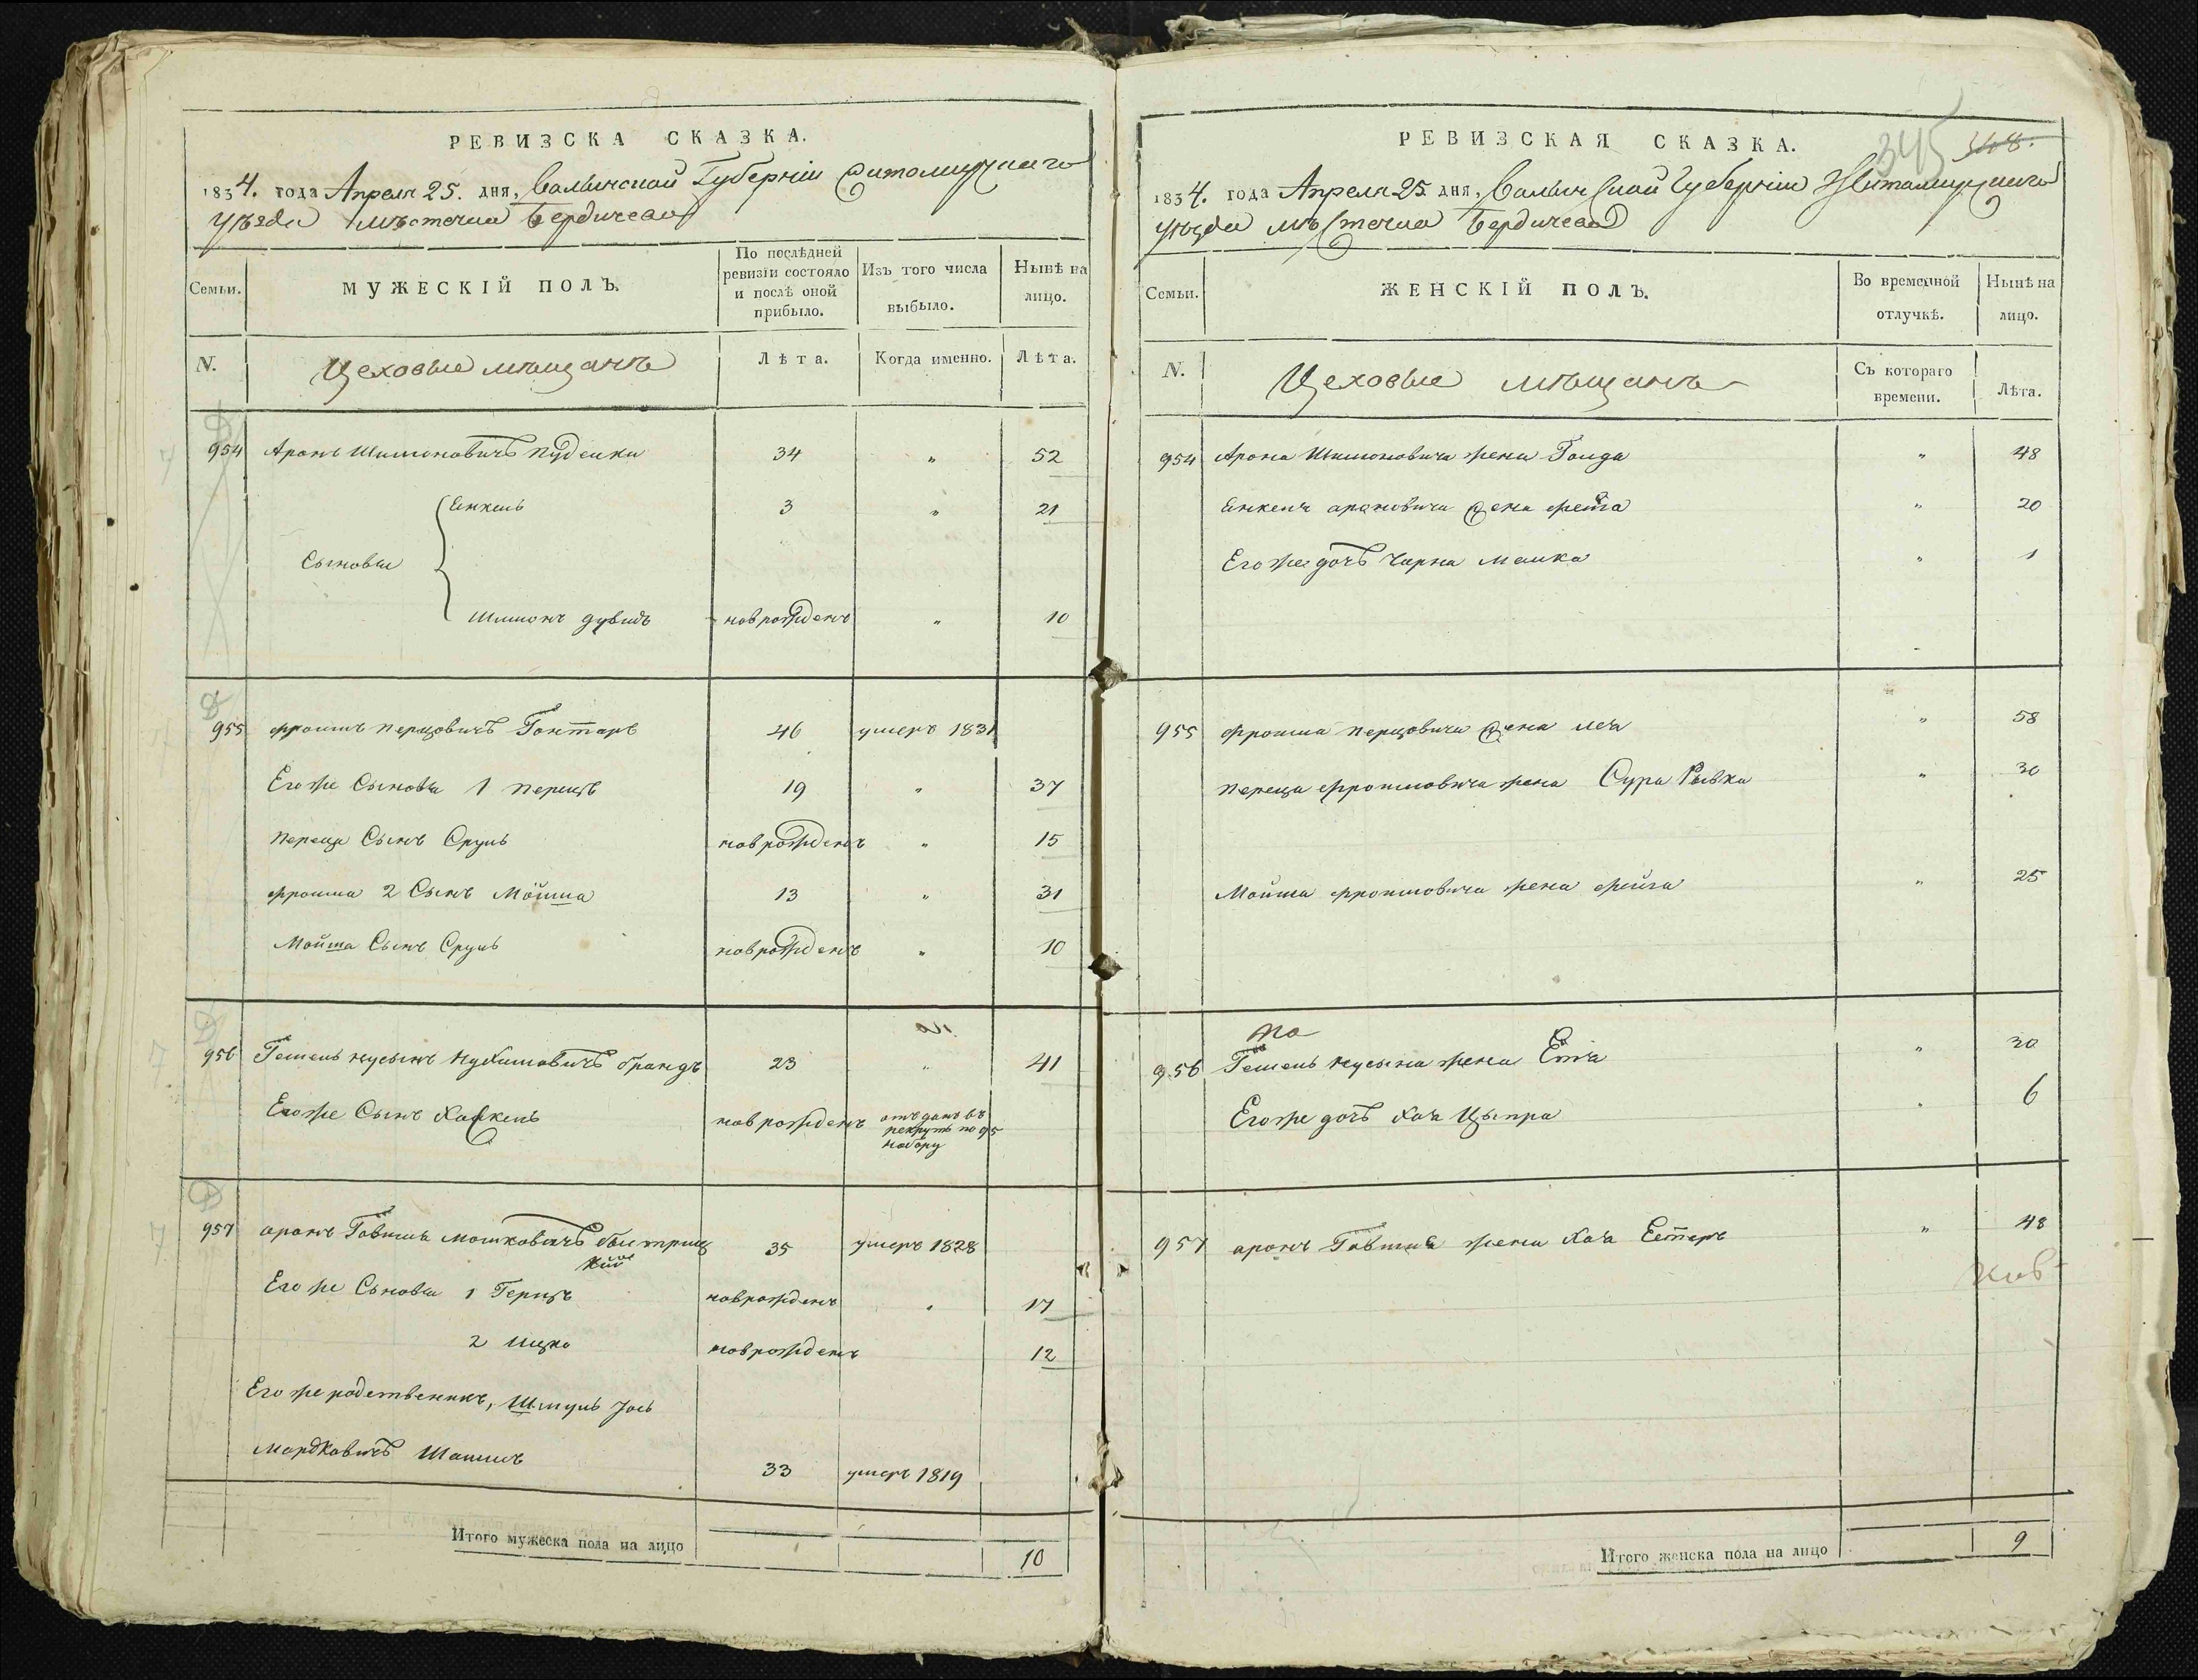 РЕВИЗСКА СКАЗКА.
1834. года Апреля 25. дня, Волынской Губерніи Житомирскаго
Уѣзда мѣстечка Бердичева
Семьи.
МУЖЕСКІЙ ПОЛЪ.
По послѣдней ревизіи состояло и послѣ оной прибыло.
Изъ того числа выбыло.
Нынѣ на лицо.
N.
Цеховые мѣщанъ
Лѣта.
Когда именно.
Лѣта.
954 Аронъ Шимоновичъ 34 " 52
Сыновья
Енкель 3 " 21
Шимонъ дувидъ новрожденъ " 10
955 Фроимъ Перцовичъ Гонтарь 46 умеръ 1831
Его же Сыновья 1 Перецъ 19 " 37
Переца Сынъ Сруль новрожденъ " 15
Фроима 2 Сынъ Мойша 13 " 31
Мойша Сынъ Сруль новрожденъ " 10
956 Гешель нусынъ брандъ 23 " 41
Его же Сынъ Хаскель новрожденъ отъданъ въ
рекрутъ по 95
набору
957 аронъ Гавшия Мошковичъ быстриц
кій 35 умеръ 1828
Его же Сыновья 1 Герцъ новрожденъ " 17
2 Ицко новрожденъ 12
Его же родственникъ, Шмуль Јось
Мордковичъ 33 умеръ 1819
Итого мужеска пола на лицо 10
РЕВИЗСКАЯ СКАЗКА.
345 348.
1834. года Апреля 25 дня, Волынской Губерніи Житомирскаго
Уѣзда мѣстечка Бердичева
Семьи.
ЖЕНСКІЙ ПОЛЪ.
Во временной отлучкѣ.
Нынѣ на лицо.
N.
Цеховые мѣщанъ
Съ котораго времени.
Лѣта.
954 Арона Шимоновича жена Голда " 48
Енкеля ароновича жена " 20
Его же дочь Чарна малка " 1
955 Фроима Перцовича жена Лея " 58
Переца Фроимовича жена Сура Рывка " 30
Мойша Фроимовича жена Фейга " 25
956 Гешель нусына жена Етя " 30
Его же дочь Хая Ципра " 6
957 аронъ Гавшия жена Хая Естеръ " 48
Итого женска пола на лицо 9